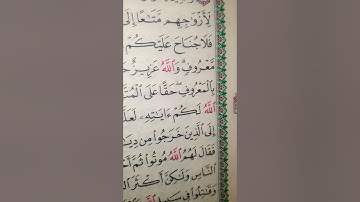 لِّأَزْوَٰجِهِم مَّتَٰعًا إِلَى
فَلَا جُنَاحَ عَلَيْكُمْ
مَّعْرُوفٍ وَٱللَّهُ عَزِيزٌ
بِٱلْمَعْرُوفِ حَقًّا عَلَى
ٱللَّهُ لَكُمْ ءَايَٰتِهِۦ
إِلَى ٱلَّذِينَ خَرَجُوا۟ مِن
فَقَالَ لَهُمُ ٱللَّهُ مُوتُوا۟ ثُمَّ
ٱلنَّاسِ وَلَٰكِنَّ أَكْثَرَ
وَقَٰتِلُوا۟ فِى سَبِيلِ